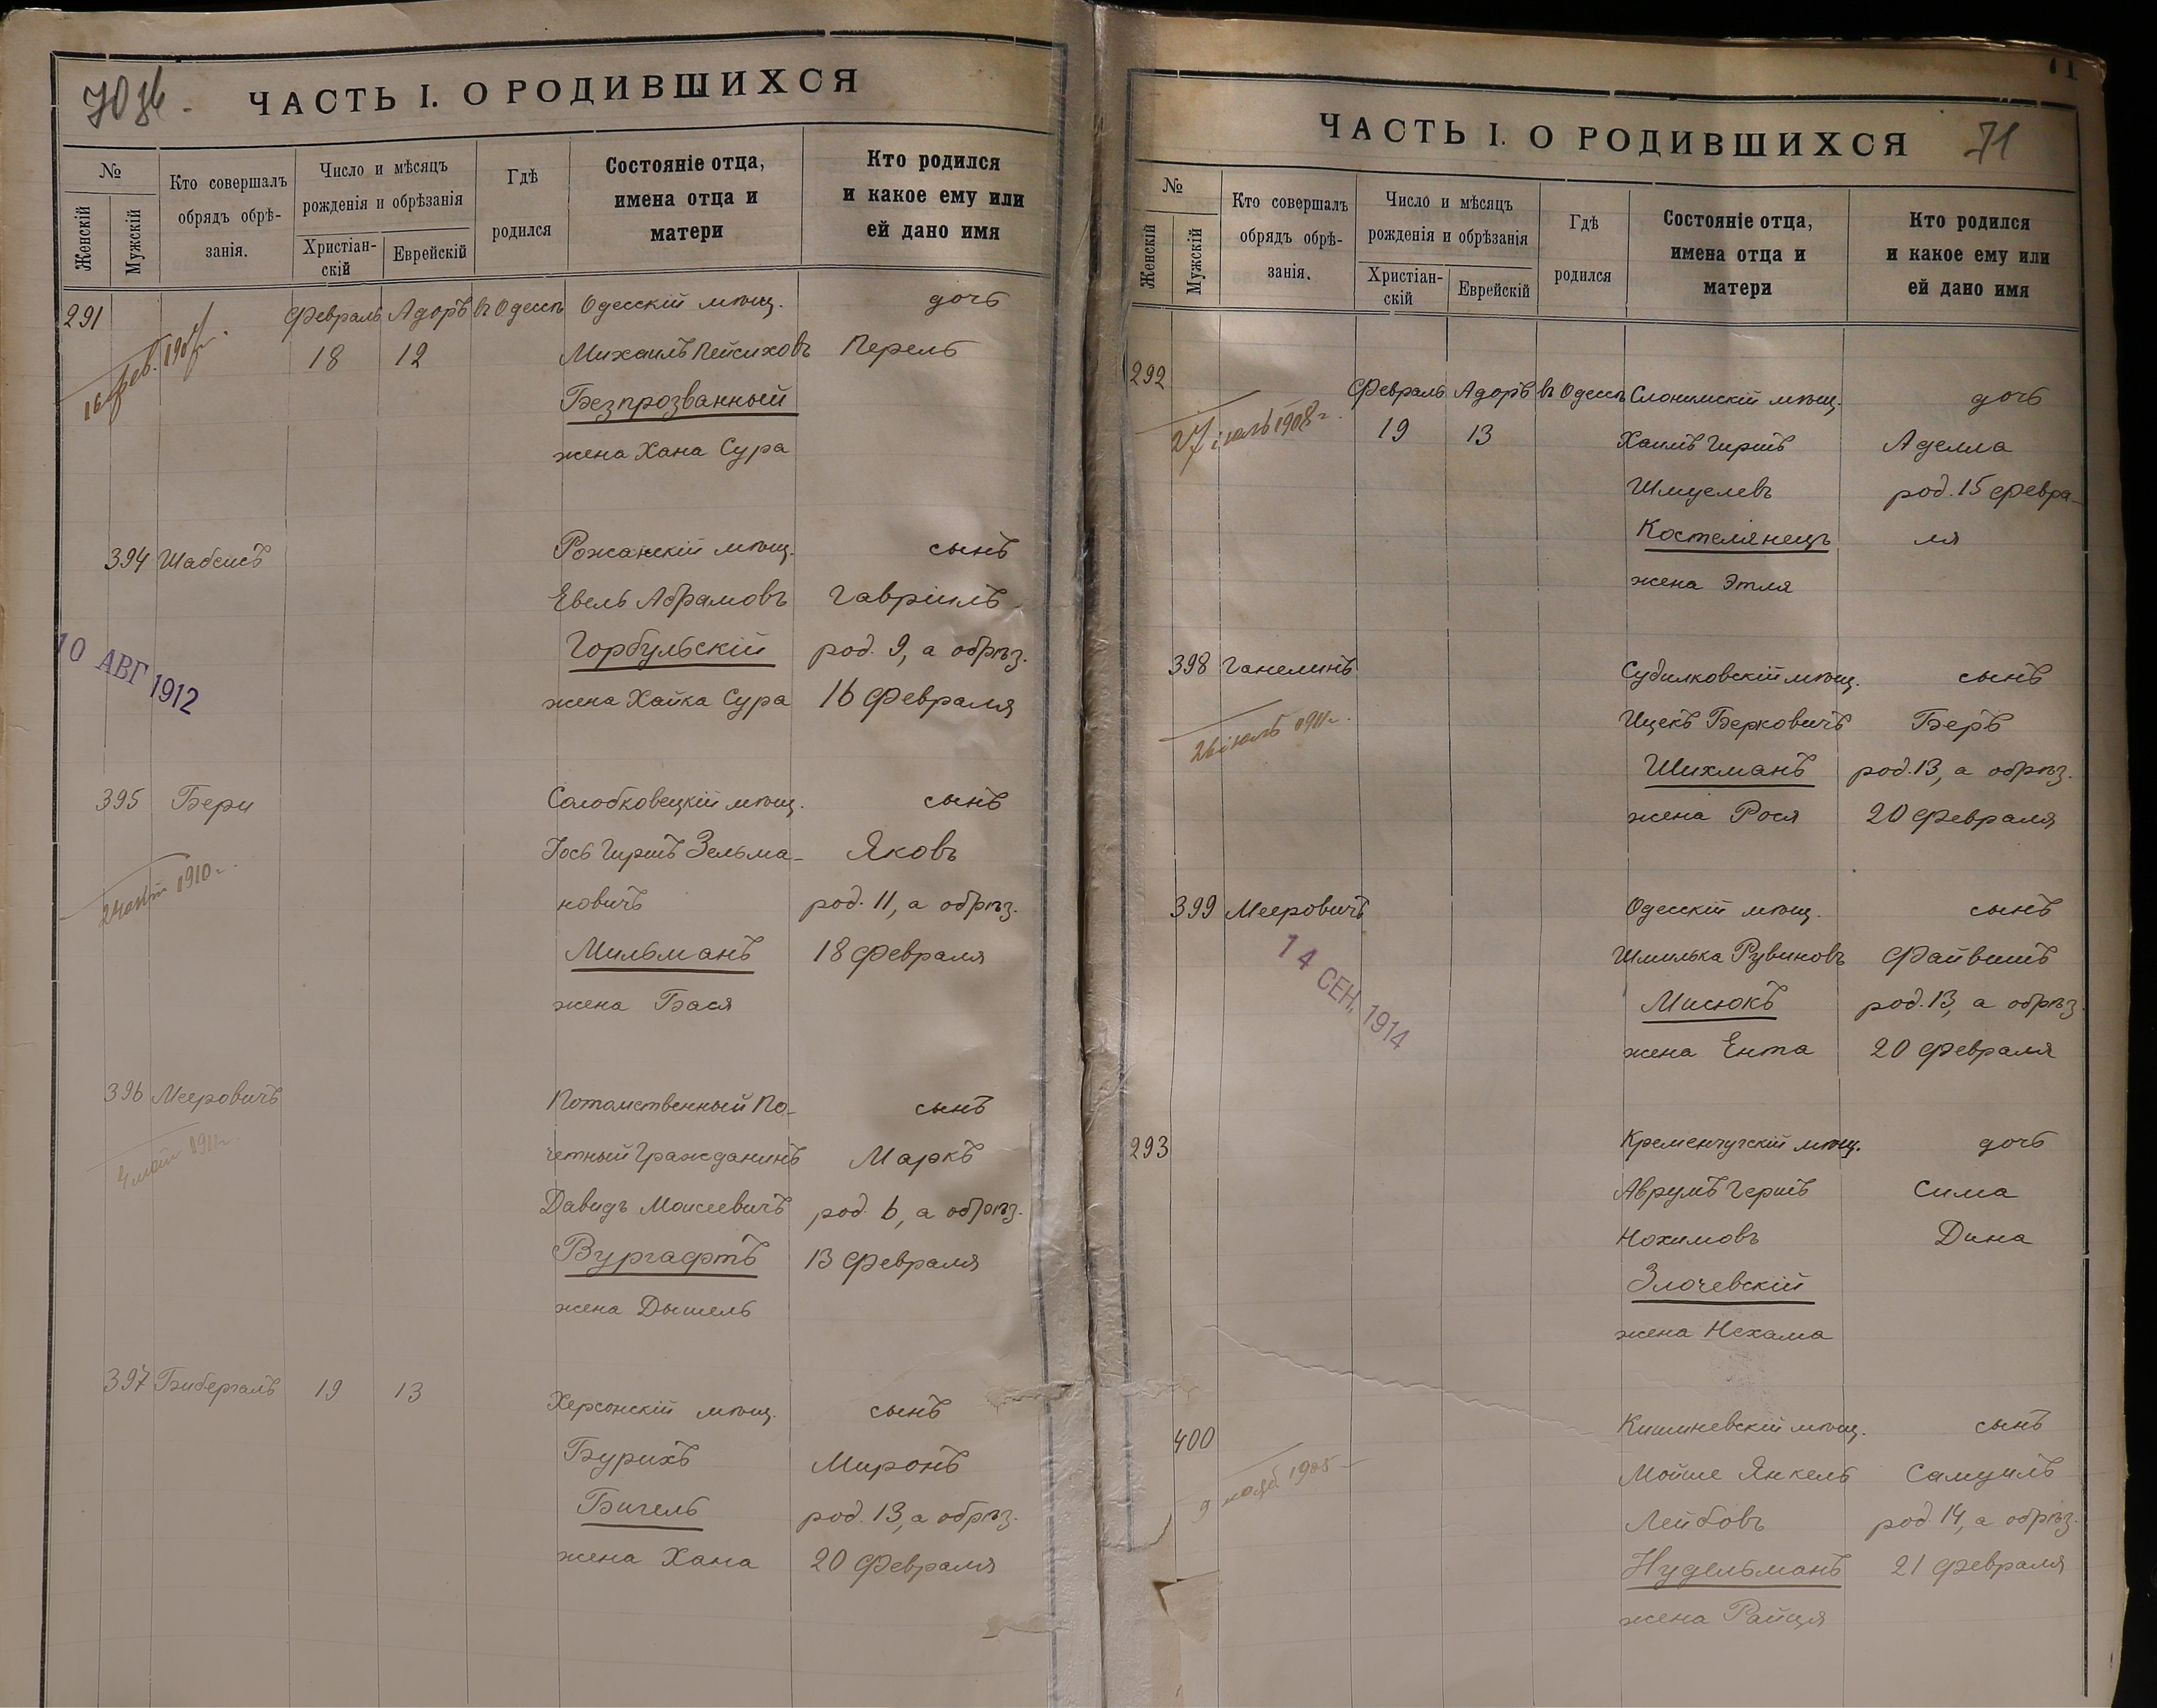 70
ЧАСТЬ I. О РОДИВШИХСЯ
№
Женскій
Мужскій
Кто совершалъ
обрядъ обрѣ-
занія.
Число и мѣсяцъ
рожденія и обрѣзанія
Христіан-
скій
Еврейскій
Гдѣ
родился
Состояніе отца,
имена отца и
матери
Кто родился
и какое ему или
ей дано имя
291 Февраль Адоръ въ Одессѣ Одесскій мѣщ. дочь
18 12 Михаилъ Пейсиховъ Перель
Безпрозванный
жена Хана Сура
394 Шабсисъ Рожанскій мѣщ. сынъ
Евель Абрамовъ Гавріилъ
Горбульскій род. 9, а обрѣз.
жена Хайка Сура 16 Февраля
10 АВГ 1912
395 Бери Солобковецкій мѣщ. сынъ
Іось Гершъ Зельма- Яковъ
новичъ род. 11, а обрѣз.
Мильманъ 18 Февраля
жена Бася
1910 г.
396 Мееровичъ Потомственный По- сынъ
четный Гражданинъ Маркъ
Давидъ Моисеевичъ род. 6, а обрѣз.
Вургафтъ 13 Февраля
жена Дышель
397 Бибергалъ 19 13 Херсонскій мѣщ. сынъ
Бурихъ Миронъ
Бигель род. 13, а обрѣз.
жена Хана 20 Февраля
ЧАСТЬ I. О РОДИВШИХСЯ
71
№
Женскій
Мужскій
Кто совершалъ
обрядъ обрѣ-
занія.
Число и мѣсяцъ
рожденія и обрѣзанія
Христіан-
скій
Еврейскій
Гдѣ
родился
Состояніе отца,
имена отца и
матери
Кто родился
и какое ему или
ей дано имя
292 Февраль Адоръ въ Одессѣ Слонимскій мѣщ. дочь
19 13 Хаимъ Гиршъ Аделла
Шмуелевъ род. 15 февра-
Костелянецъ ля
жена Этля
27 1908 г.
398 Ганелинъ Судилковскій мѣщ. сынъ
Ицекъ Берковичъ Беръ
Шихманъ род. 13, а обрѣз.
жена Рося 20 Февраля
1911 г.
399 Мееровичъ Одесскій мѣщ. сынъ
Шмилька Рувиновъ Файвишъ
Мисюкъ род. 13, а обрѣз.
жена Ента 20 Февраля
14 СЕН. 1914
293 Кременчугскій мѣщ. дочь
Аврумъ Гершъ Сима
Нохимовъ Дина
Злочевскій
жена Нехама
400 Кишиневскій мѣщ. сынъ
Мойше Янкель Самуилъ
Лейбовъ род. 14, а обрѣз.
Нудельманъ 21 Февраля
жена Райця